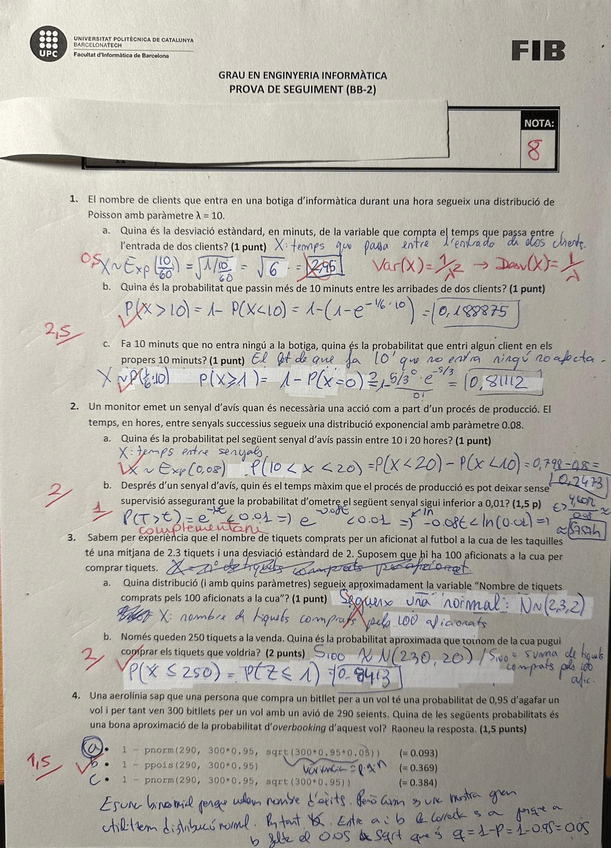 UNIVERSITAT POLITÈCNICA DE CATALUNYA
BARCELONATECH
Facultat d'Informàtica de Barcelona
UPC
FIB
GRAU EN ENGINYERIA INFORMÀTICA
PROVA DE SEGUIMENT (BB-2)
NOTA:
8
1. El nombre de clients que entra en una botiga d'informàtica durant una hora segueix una distribució de
Poisson amb paràmetre λ = 10.
a. Quina és la desviació estàndard, en minuts, de la variable que compta el temps que passa entre
l'entrada de dos clients? (1 punt) X: temps que passa entre l'entrada de dos clients.
0,5 X ~ Exp(10/60) = √(1/10/60) = √6 = 2,45 Var(X) = 1/λ² → Desv(X) = 1/λ
b. Quina és la probabilitat que passin més de 10 minuts entre les arribades de dos clients? (1 punt)
P(X > 10) = 1 - P(X < 10) = 1 - (1 - e^(-1/6·10)) = 0,188875
2,5
c. Fa 10 minuts que no entra ningú a la botiga, quina és la probabilitat que entri algun client en els
propers 10 minuts? (1 punt) El fet de que fa 10' que no entra ningú no afecta.
P(X ≥ 1) = 1 - P(X = 0) = 0,81112
2. Un monitor emet un senyal d'avís quan és necessària una acció com a part d'un procés de producció. El
temps, en hores, entre senyals successius segueix una distribució exponencial amb paràmetre 0.08.
a. Quina és la probabilitat pel següent senyal d'avís passin entre 10 i 20 hores? (1 punt)
X: temps entre senyals
X ~ Exp(0,08) P(10 < X < 20) = P(X < 20) - P(X < 10) = 0,2473
2
b. Després d'un senyal d'avís, quin és el temps màxim que el procés de producció es pot deixar sense
supervisió assegurant que la probabilitat d'ometre el següent senyal sigui inferior a 0,01? (1,5 p)
1 P(T > t) = e^(-λt) < 0.01 => e^(-0.08t) < 0.01 => -0.08t < ln(0.01) =>
complementari
3. Sabem per experiència que el nombre de tiquets comprats per un aficionat al futbol a la cua de les taquilles
té una mitjana de 2.3 tiquets i una desviació estàndard de 2. Suposem que hi ha 100 aficionats a la cua per
comprar tiquets.
a. Quina distribució (i amb quins paràmetres) segueix aproximadament la variable "Nombre de tiquets
comprats pels 100 aficionats a la cua"? (1 punt) Segueix una normal: N ~ (2,3,2)
X: nombre de tiquets comprats pels 100 aficionats
b. Només queden 250 tiquets a la venda. Quina és la probabilitat aproximada que tothom de la cua pugui
comprar els tiquets que voldria? (2 punts) S100 ~ N(230, 20) / S100 = suma de tiquets
comprats pels 100
afic.
2
P(X ≤ 250) = P(Z ≤ 1) = 0.8413
4. Una aerolínia sap que una persona que compra un bitllet per a un vol té una probabilitat de 0,95 d'agafar un
vol i per tant ven 300 bitllets per un vol amb un avió de 290 seients. Quina de les següents probabilitats és
una bona aproximació de la probabilitat d'overbooking d'aquest vol? Raoneu la resposta. (1,5 punts)
a • 1 - pnorm(290, 300*0.95, sqrt(300*0.95*0.05)) (= 0.093)
1,5 b • 1 - ppois(290, 300*0.95) (= 0.369)
c • 1 - pnorm(290, 300*0.95, sqrt(300*0.95)) (= 0.384)
És una binomial perquè volem nombre d'èxits. Però com és una mostra gran
utilitzem distribució normal. Per tant
0.05 sqrt que és q = 1 - p = 1 - 0.95 = 0.05